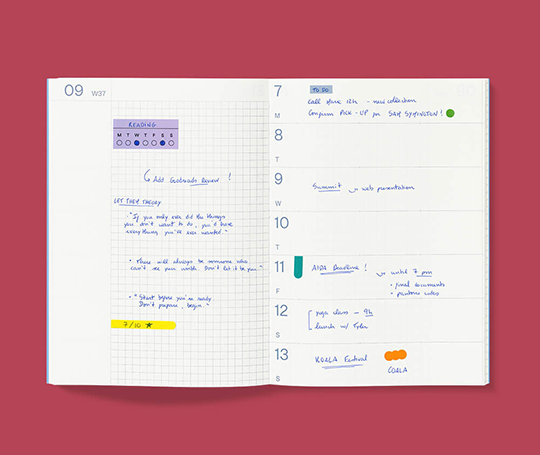 09 W37
READING
M T W T F S S
Add Goodreads Review !
LET THEM THEORY
"If you only ever did the things
you don't want to do, you'd have
everything you've ever wanted."
• There will always be someone who
can't see your worth. Don't let it be you.
• "Start before you're ready.
Don't prepare, begin."
7/10 ★
7
M
TO DO
call 12h - new collection
Confirm PICK-UP for SAM SYMINGTON!
8
T
9
W
Summit web presentation
10
T
11
F
AIDA Deadline! until 7 pm
• final documents
• pantone codes
12
S
yoga class - 9h
lunch w/ Tyler
13
S
KOALA Festival
KOALA